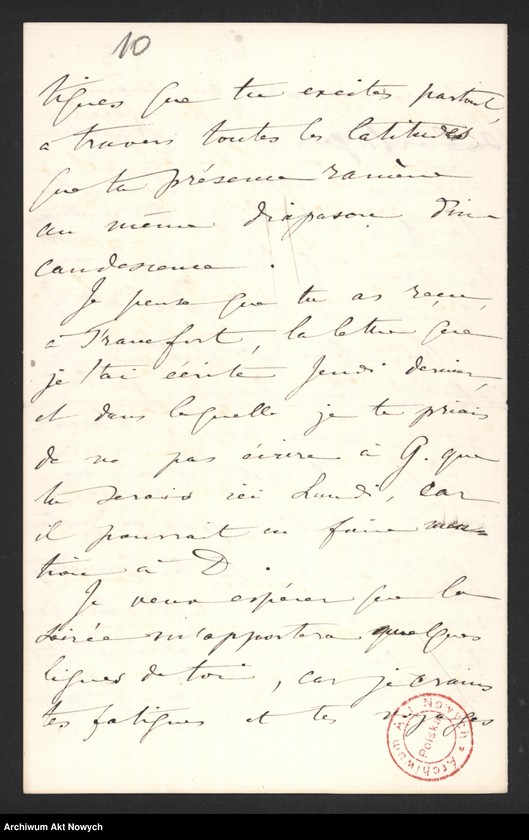 10
tiques que tu excites partout,
a travers toutes les latitudes
que ta présence ramène
au même diapason d'in-
candescence.
Je pense que tu as reçu,
à Francfort, la lettre que
je t'ai écrite Jeudi dernier,
et dans laquelle je te priais
de ne pas écrire à G. que
tu serais ici Lundi, car
il pourrait en faire men-
tion à D.
Je veux espérer que la
soirée m'apportera quelques
lignes de toi, car je crains
les fatigues et les voyages
Archiwum Akt Nowych * Polska
Archiwum Akt Nowych